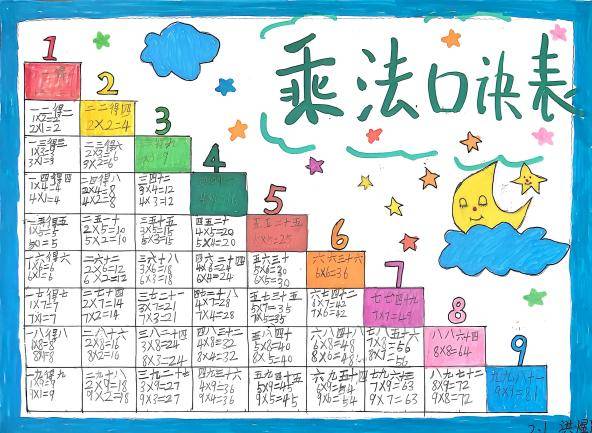 乘法口诀表
1
2
3
4
5
6
7
8
9
一二得二
1×2=2
2×1=2
二二得四
2×2=4
一三得三
1×3=3
3×1=3
二三得六
2×3=6
3×2=6
一四得四
1×4=4
4×1=4
二四得八
2×4=8
4×2=8
三四十二
3×4=12
4×3=12
一五得五
1×5=5
二五一十
2×5=10
5×2=10
三五十五
3×5=15
5×3=15
四五二十
4×5=20
5×4=20
五五二十五
5×5=25
一六得六
1×6=6
6×1=6
二六十二
2×6=12
6×2=12
三六十八
3×6=18
6×3=18
四六二十四
4×6=24
6×4=24
五六三十
5×6=30
6×5=30
六六三十六
6×6=36
一七得七
1×7=7
7×1=7
二七十四
2×7=14
7×2=14
三七二十一
3×7=21
7×3=21
四七二十八
4×7=28
7×4=28
五七三十五
5×7=35
7×5=35
六七四十二
6×7=42
7×6=42
七七四十九
7×7=49
一八得八
1×8=8
8×1=8
二八十六
2×8=16
8×2=16
三八二十四
3×8=24
8×3=24
四八三十二
4×8=32
8×4=32
五八四十
5×8=40
8×5=40
六八四十八
6×8=48
8×6=48
七八五十六
7×8=56
8×7=56
八八六十四
8×8=64
一九得九
1×9=9
9×1=9
二九十八
2×9=18
9×2=18
三九二十七
3×9=27
9×3=27
四九三十六
4×9=36
9×4=36
五九四十五
5×9=45
9×5=45
六九五十四
6×9=54
9×6=54
七九六十三
7×9=63
9×7=63
八九七十二
8×9=72
9×8=72
九九八十一
9×9=81